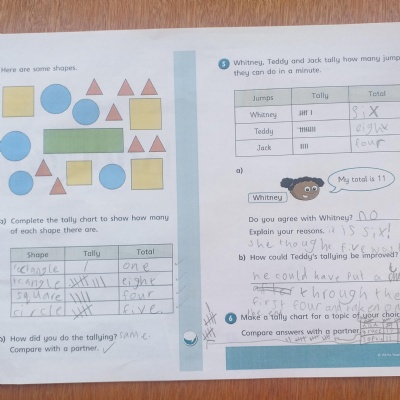 Here are some shapes.
Complete the tally chart to show how many
of each shape there are.
Shape Tally Total
one
triangle eight
square four
circle five
How did you do the tallying? same
Compare with a partner.
5 Whitney, Teddy and Jack tally how many jump
they can do in a minute.
Jumps Tally Total
Whitney six
Teddy eight
Jack four
a)
My total is 11
Whitney
Do you agree with Whitney? no
Explain your reasons. it is six!
she though five was
b) How could Teddy's tallying be improved?
he could have put a
through the
first four
6 Make a tally chart for a topic of your choice
Compare answers with a partner.